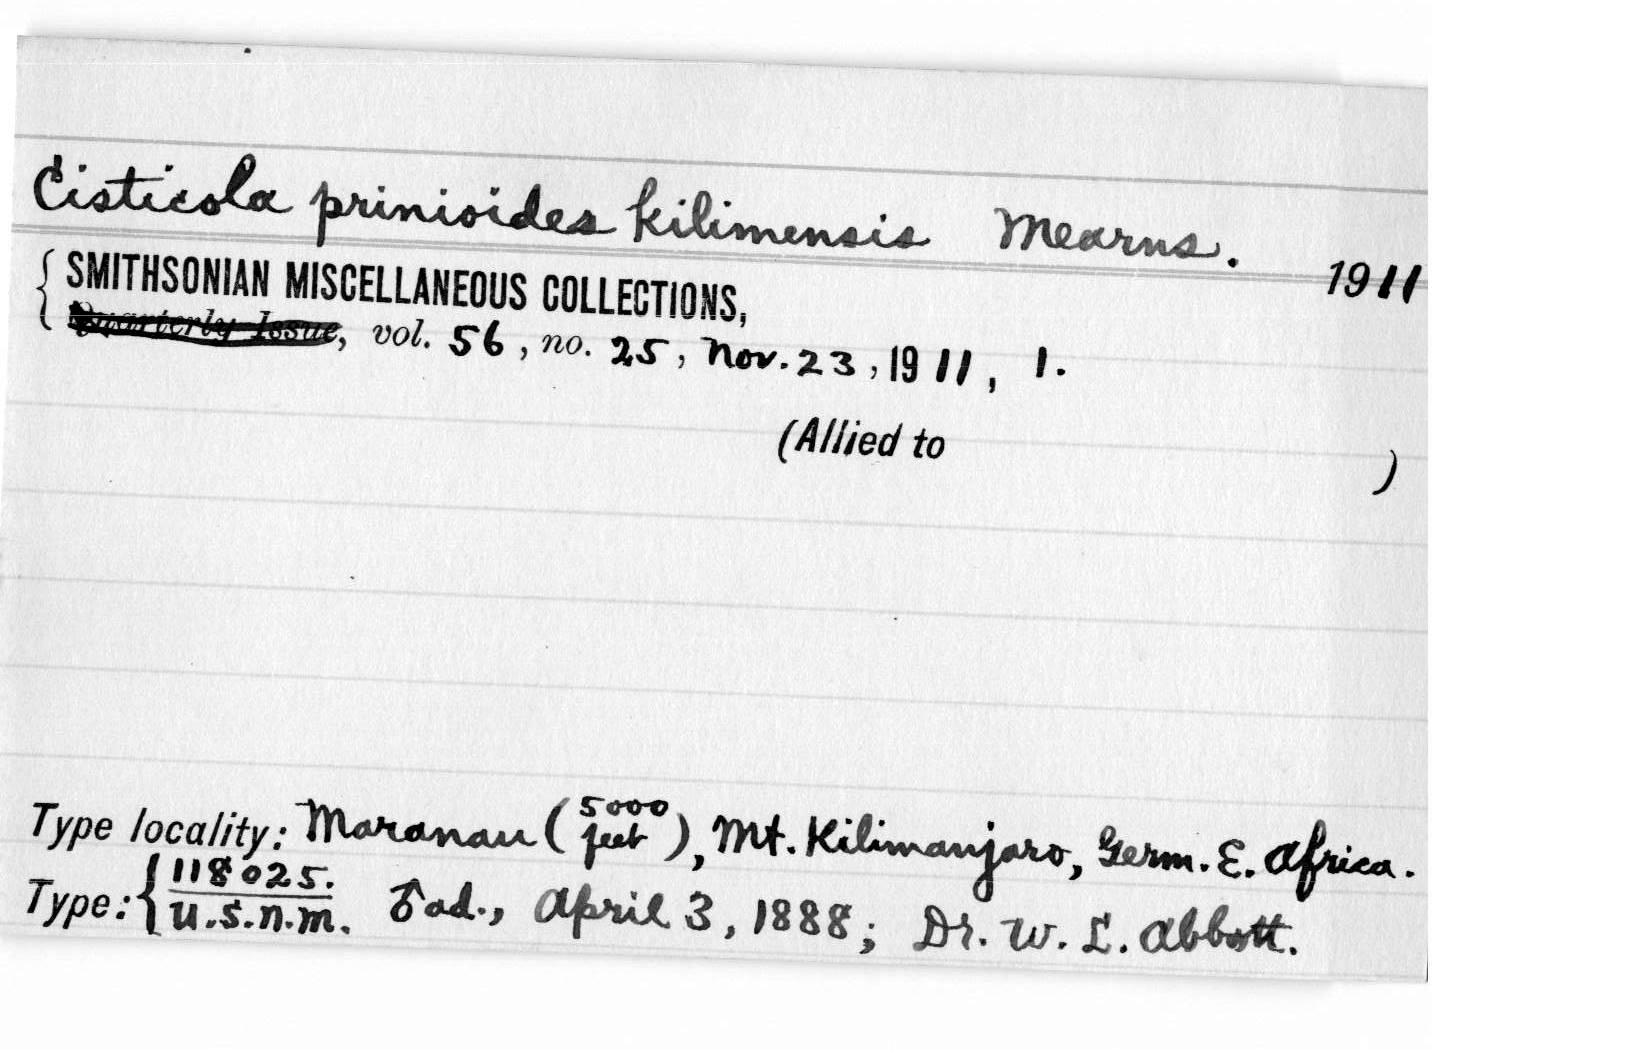 Cisticola prinioides kilimensis Mearns.
1911
{ SMITHSONIAN MISCELLANEOUS COLLECTIONS,
Quarterly Issue, vol. 56, no. 25, Nov. 23, 1911, 1.
(Allied to )
Type locality: Maranau (5000 feet), Mt. Kilimanjaro, Germ. E. Africa.
Type: { 118025.
U.S.N.M. ♂ ad., April 3, 1888; Dr. W. L. Abbott.